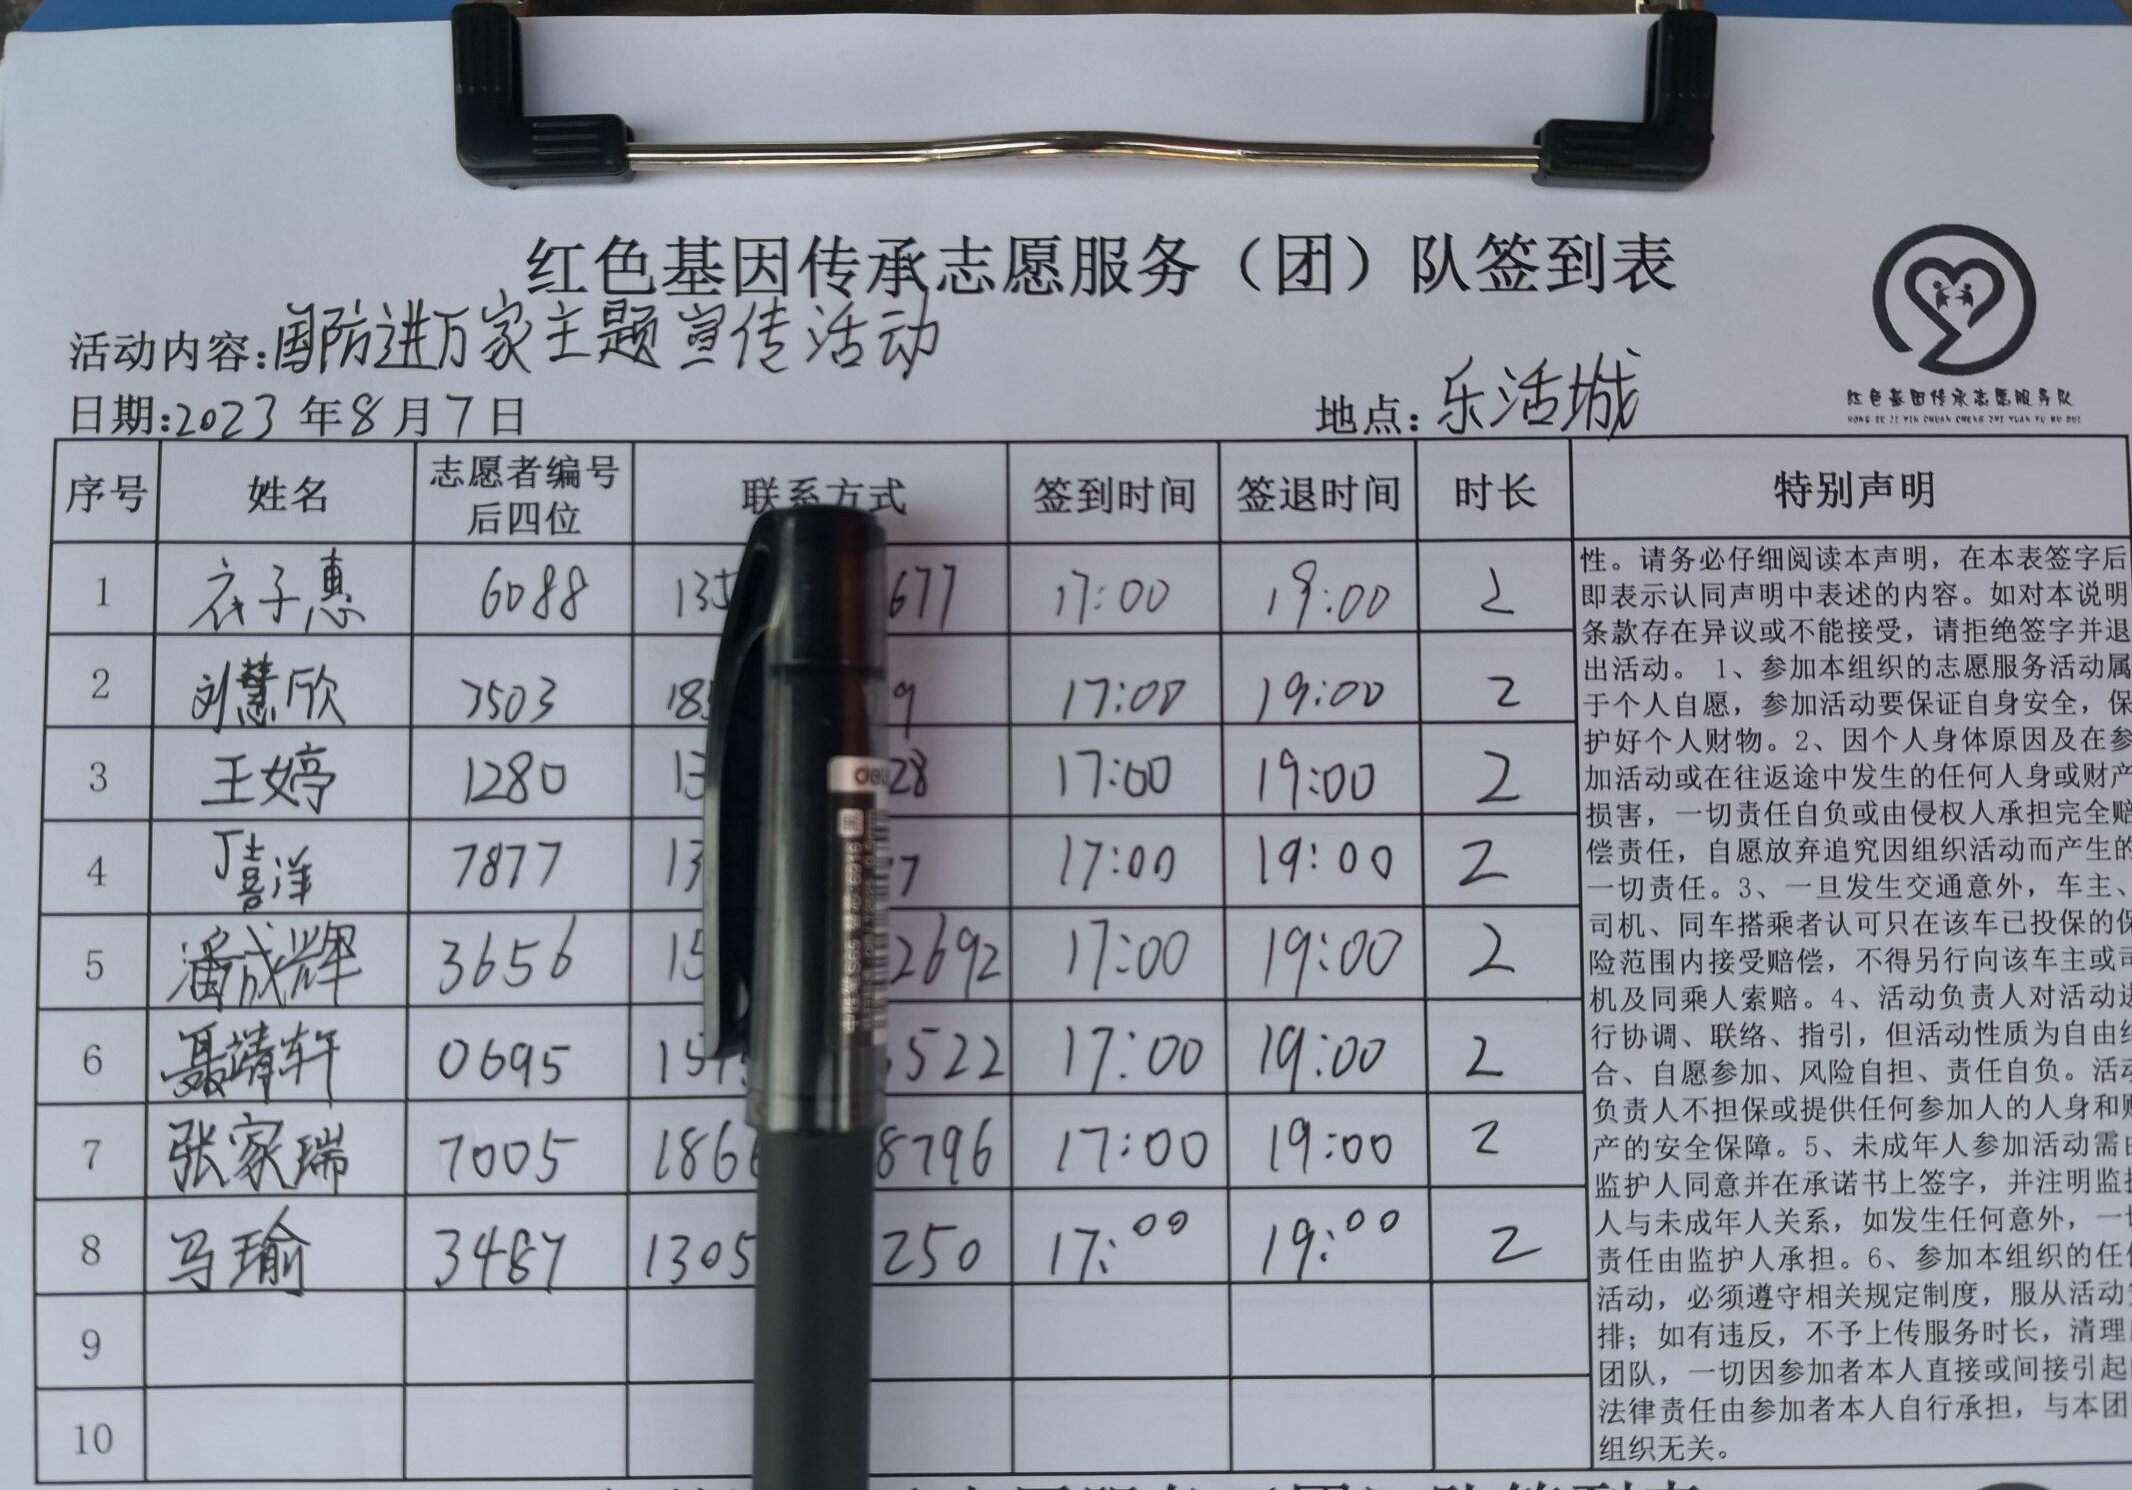 红色基因传承志愿服务（团）队签到表
活动内容:国防进万家主题宣传活动
日期:2023年8月7日 地点:乐活城
红色基因传承志愿服务队
HONG SE JI YIN CHUAN CHENG ZHI YUAN FU WU DUI
序号 姓名 志愿者编号后四位 联系方式 签到时间 签退时间 时长 特别声明
1 衣子惠 6088 135 677 17:00 19:00 2
2 刘慧欣 7503 185 9 17:00 19:00 2
3 王婷 1280 13 28 17:00 19:00 2
4 丁喜洋 7877 13 7 17:00 19:00 2
5 潘成辉 3656 15 2692 17:00 19:00 2
6 聂靖轩 0695 15 522 17:00 19:00 2
7 张家瑞 7005 186 8796 17:00 19:00 2
8 马瑜 3487 1305 250 17:00 19:00 2
9
10
性。请务必仔细阅读本声明，在本表签字后
即表示认同声明中表述的内容。如对本说明
条款存在异议或不能接受，请拒绝签字并退
出活动。 1、参加本组织的志愿服务活动属
于个人自愿，参加活动要保证自身安全，保
护好个人财物。2、因个人身体原因及在参
加活动或在往返途中发生的任何人身或财产
损害，一切责任自负或由侵权人承担完全赔
偿责任，自愿放弃追究因组织活动而产生的
一切责任。3、一旦发生交通意外，车主、
司机、同车搭乘者认可只在该车已投保的保
险范围内接受赔偿，不得另行向该车主或司
机及同乘人索赔。4、活动负责人对活动进
行协调、联络、指引，但活动性质为自由结
合、自愿参加、风险自担、责任自负。活动
负责人不担保或提供任何参加人的人身和财
产的安全保障。5、未成年人参加活动需由
监护人同意并在承诺书上签字，并注明监护
人与未成年人关系，如发生任何意外，一切
责任由监护人承担。6、参加本组织的任何
活动，必须遵守相关规定制度，服从活动安
排；如有违反，不予上传服务时长，清理出
团队，一切因参加者本人直接或间接引起的
法律责任由参加者本人自行承担，与本团
组织无关。
deli